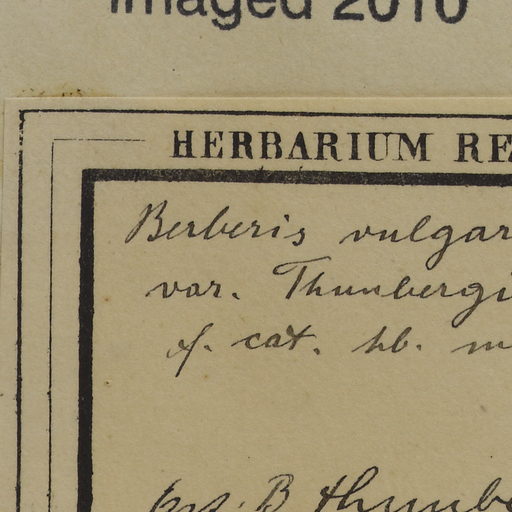 Imaged 2010
HERBARIUM RE
Berberis vulgar
var. Thunbergi
cat. hb. m
B. thunbe